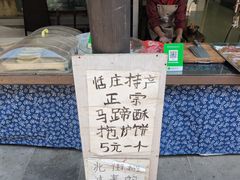 恬庄特产
正宗
马蹄酥
拖炉饼
5元一个